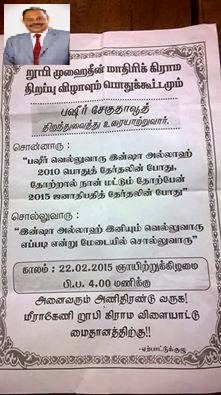 றூபி முஹைதீன் மாதிரிக் கிராம
திறப்பு விழாவும் பொதுக்கூட்டமும்
பஷீர் சேகுதாவூத்
திறந்துவைத்து உரையாற்றுவார்.
சொன்னாரு :
"பஷீர் வெல்லுவாரு இன்ஷா அல்லாஹ்
2010 பொதுத் தேர்தலின் போது,
தோற்றால் நான் மட்டும் தோற்பேன்
2015 ஜனாதிபதித் தேர்தலின் போது"
சொல்லுவாரு :
"இன்ஷா அல்லாஹ் இனியும் வெல்லுவாரு
எப்படி என்று மேடையில் சொல்லுவாரு"
காலம் : 22.02.2015 ஞாயிற்றுக்கிழமை
பி.ப. 4.00 மணிக்கு
அனைவரும் அணிதிரண்டு வருக!
மீராகேணி றூபி கிராம விளையாட்டு
மைதானத்திற்கு!!
-ஏற்பாட்டுக்குழு